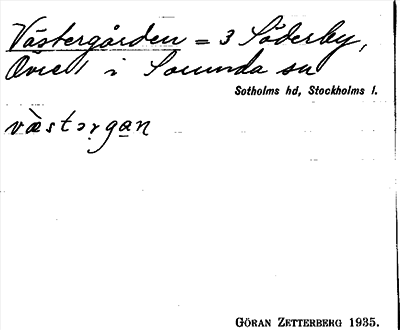 Västergården = 3 Söderby,
i Sorunda sn
Sotholms hd, Stockholms l.
västərgan
GÖRAN ZETTERBERG 1935.